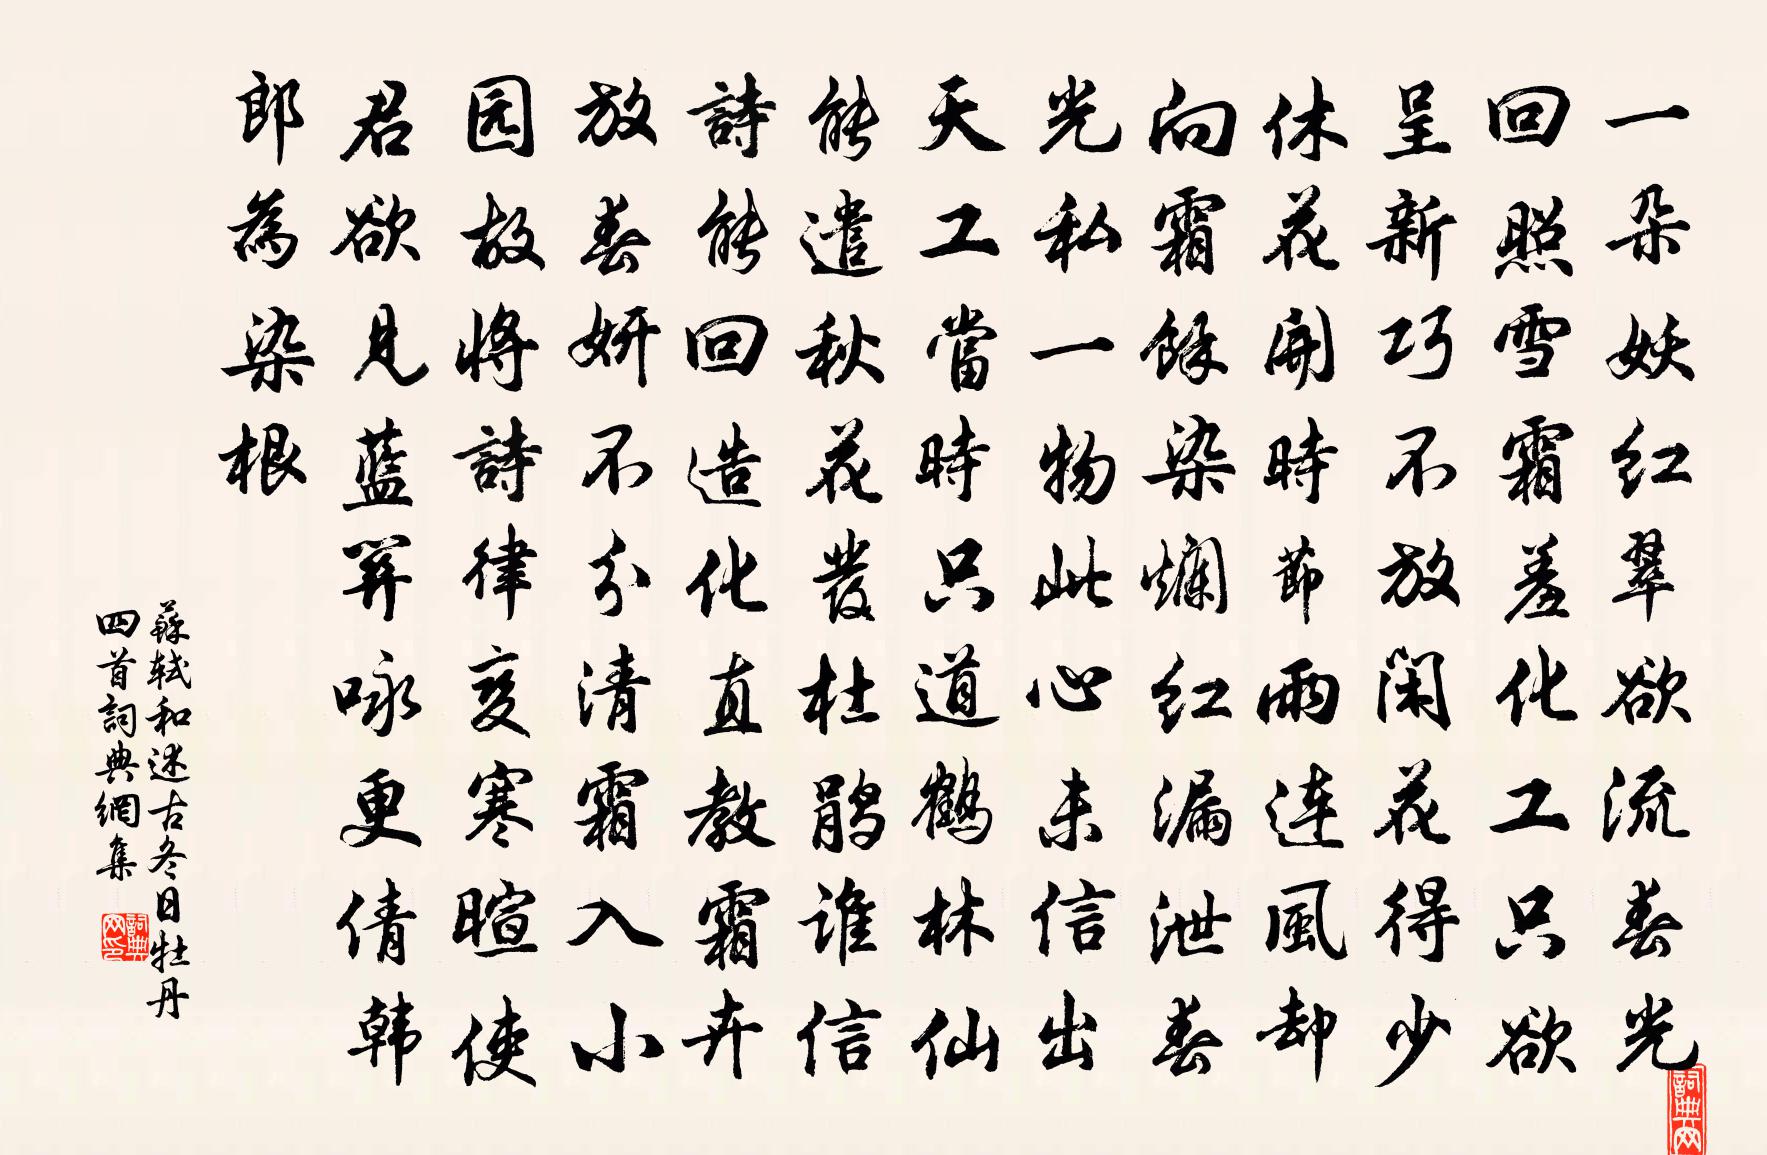 一朵妖红翠欲流春光
回照雪霜羞化工只欲
呈新巧不放闲花得少
休花開時節雨连風却
向霜餘染爛红漏泄春
光私一物此心未信出
天工當時只道鶴林仙
能遣秋花發杜鹃谁信
詩能回造化直教霜卉
放春妍不分清霜入小
园故將詩律变寒暄使
君欲見藍関咏更倩韩
郎為染根
蘇軾和述古冬日牡丹
四首詞典網集
詞典网
詞典网